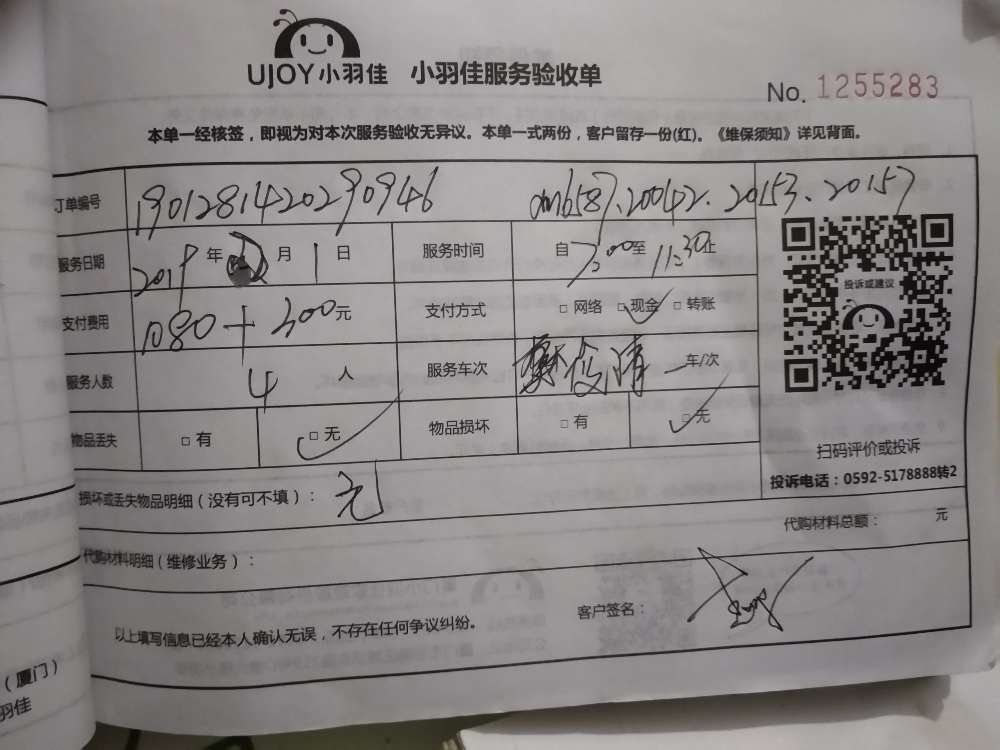 UJOY小羽佳 小羽佳服务验收单
No. 1255283
本单一经核签，即视为对本次服务验收无异议。本单一式两份，客户留存一份(红)。《维保须知》详见背面。
订单编号 19012814202909946 20042.20153.20157
服务日期 2019年 月1日 服务时间 自7:00至11:30止
支付费用 1080+300元 支付方式 □网络 □现金 □转账
投诉或建议
服务人数 4人 服务车次 俊清 车/次
物品丢失 □有 □无 物品损坏 □有 □无
扫码评价或投诉
投诉电话：0592-5178888转2
损坏或丢失物品明细（没有可不填）： 无
代购材料总额： 元
代购材料明细（维修业务）：
以上填写信息已经本人确认无误，不存在任何争议纠纷。
客户签名：
（厦门）
羽佳